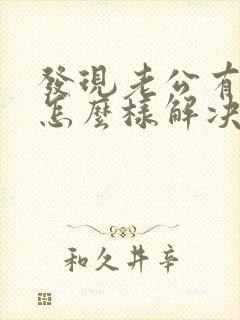 發現老公有
怎麼樣解决
和久井辛